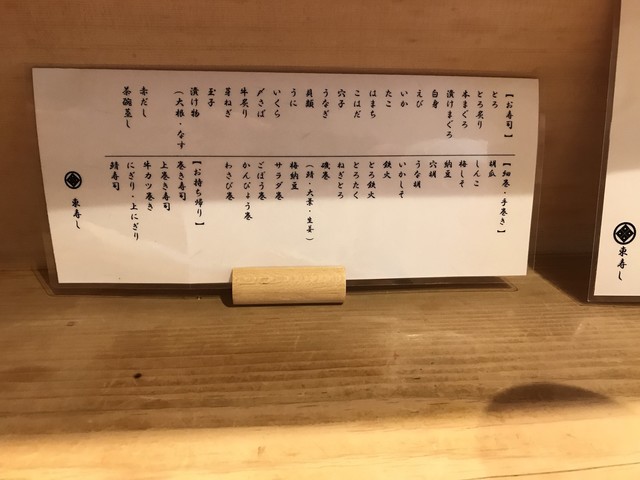 【お寿司】
とろ
とろ炙り
本まぐろ
漬けまぐろ
白身
えび
いか
たこ
はまち
こはだ
穴子
うなぎ
貝類
うに
いくら
〆さば
牛炙り
芽ねぎ
玉子
漬け物
（大根・なす
赤だし
茶碗蒸し
【細巻・手巻き】
胡瓜
しんこ
梅しそ
納豆
穴胡
うな胡
いかしそ
鉄火
とろ鉄火
とろたく
ねぎとろ
磯巻
（鯖・大葉・生姜）
梅納豆
サラダ巻
ごぼう巻
かんぴょう巻
わさび巻
【お持ち帰り】
巻き寿司
上巻き寿司
牛カツ巻き
にぎり・上にぎり
鯖寿司
東寿し
東寿し